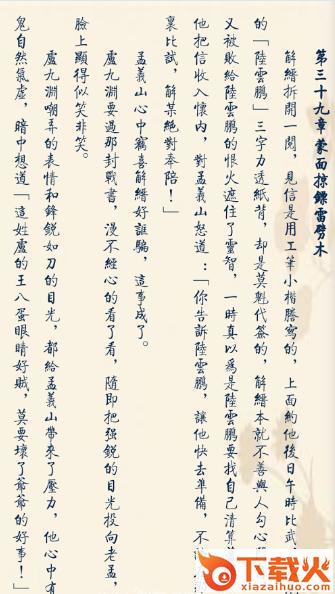 第三十九章蒙面掠鏢雷劈木
解縉拆開一閱，見信是用工筆小楷謄寫的，上面約他後日午時比武，
的「陸雲鵬」三字力透紙背，却是莫魁代簽的，解縉本就不善與人勾心
又被敗給陸雲鵬的恨火遮住了靈智，一時真以爲是陸雲鵬要找自己清算
他把信收入懷内，對孟義山怒道：「你告訴陸雲鵬，讓他快去準備，不
裏比試，解某絕對奉陪！」
孟義山心中竊喜解縉好誰騙，這事成了。
盧九淵要過那封戰書，漫不經心的看了看，隨即把强鋭的目光投向老孟，
臉上顯得似笑非笑。
盧九淵嘲弄的表情和鋒鋭如刀的目光，都給孟義山帶來了壓力，他心中有
鬼自然氣虛，暗中想道「這姓盧的王八蛋眼睛好賊，莫要壞了爺爺的好事！」
下载火
xiazaihuo.com